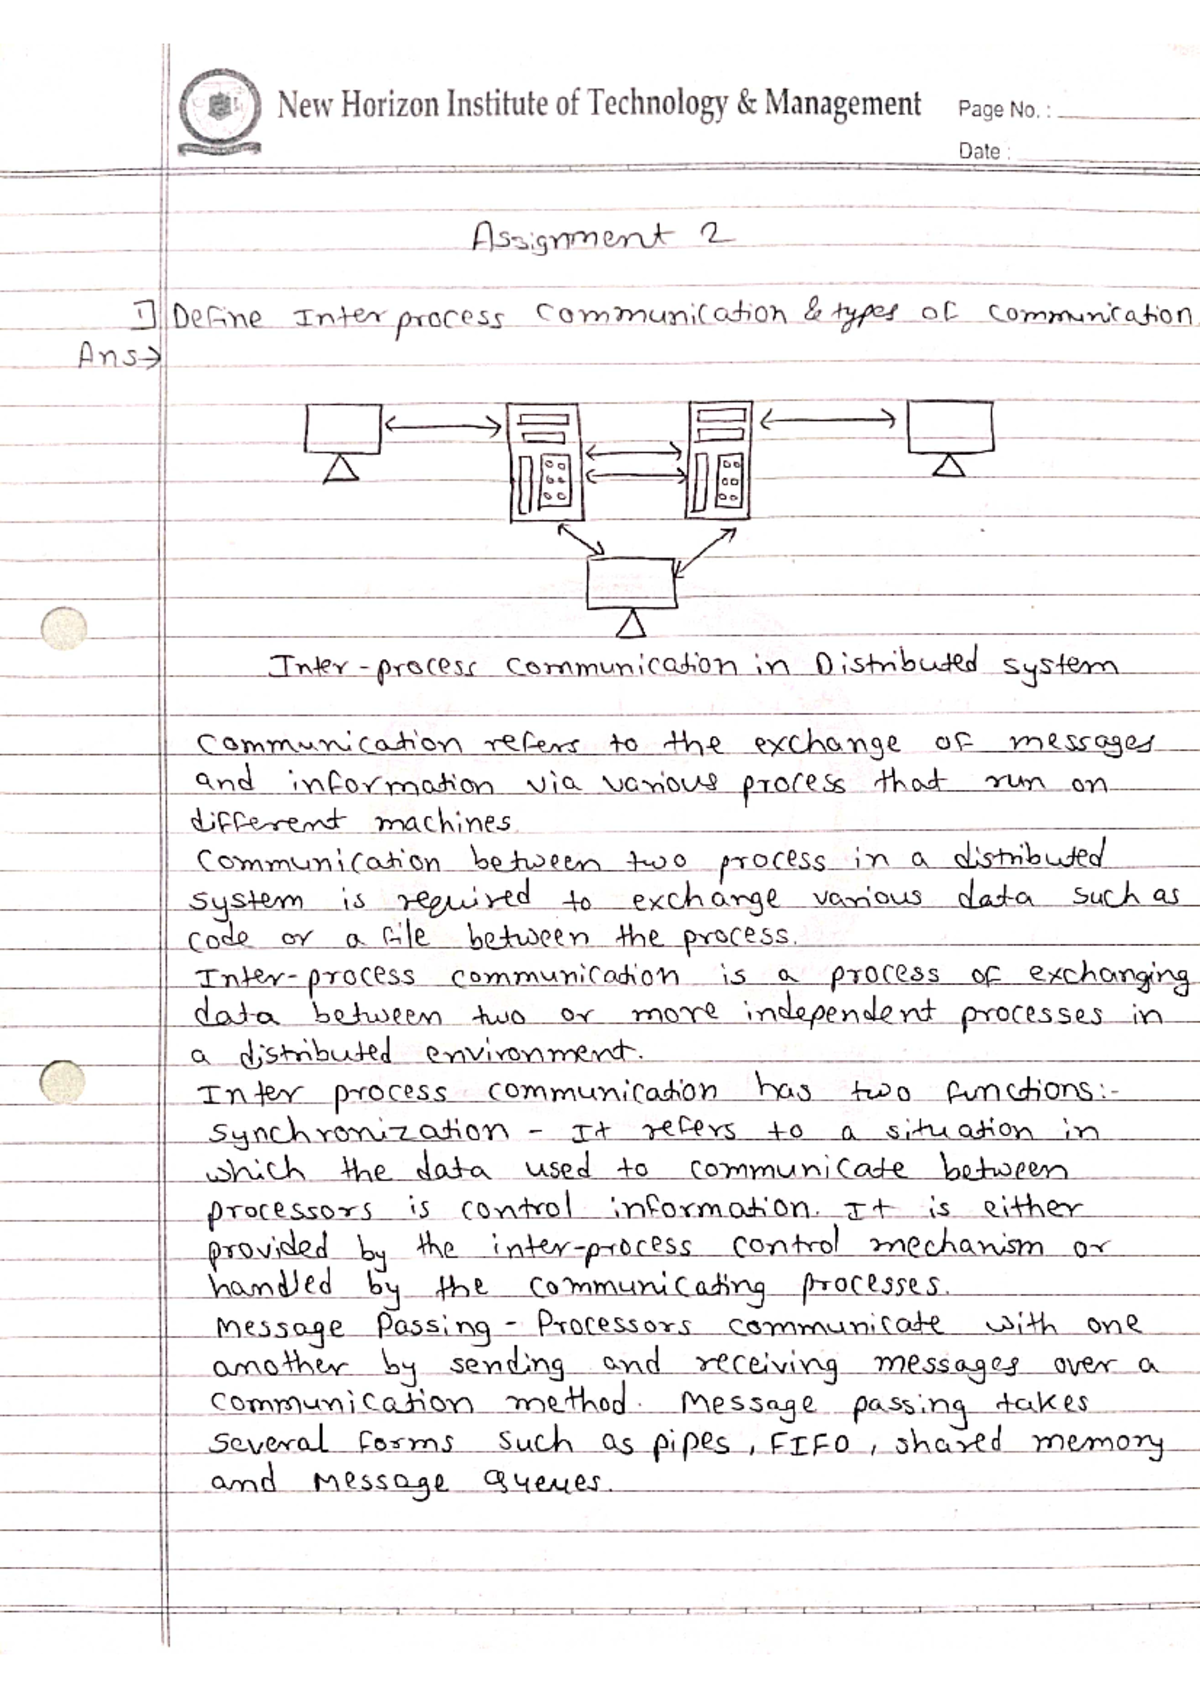 New Horizon Institute of Technology & Management
Page No. :
Date :
Assignment 2
1] Define Inter process communication & types of communication
Ans→
Inter-process communication in Distributed system
Communication refers to the exchange of messages
and information via various process that run on
different machines.
Communication between two process in a distributed
system is required to exchange various data such as
code or a file between the process.
Inter-process communication is a process of exchanging
data between two or more independent processes in
a distributed environment.
Inter process communication has two functions:-
Synchronization - It refers to a situation in
which the data used to communicate between
processors is control information. It is either
provided by the inter-process control mechanism or
handled by the communicating processes.
Message Passing - Processors communicate with one
another by sending and receiving messages over a
communication method. Message passing takes
several forms such as pipes, FIFO, shared memory
and Message Queues.